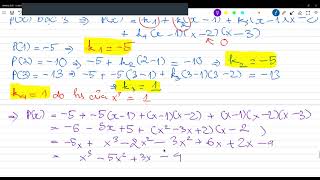 P(x) = k₁ + k₂(x-1) + k₃(x-1)(x-2)
+ k₄(x-1)(x-2)(x-3)
0
P(1) = -5 ⇒ k₁ = -5
P(2) = -10 ⇒ -5 + k₂(2-1) = -10 ⇒ k₂ = -5
P(3) = -13 ⇒ -5 - 5(3-1) + k₃(3-1)(3-2) = -13
⇒ k₃ = 1
k₄ = 1 do hs của x³ = 1
⇒ P(x) = -5 + -5(x-1) + (x-1)(x-2) + (x-1)(x-2)(x-3)
= -5 - 5x + 5 + (x²-3x+2)(x-2)
= -5x + x³ - 2x² - 3x² + 6x + 2x - 4
= x³ - 5x² + 3x - 4